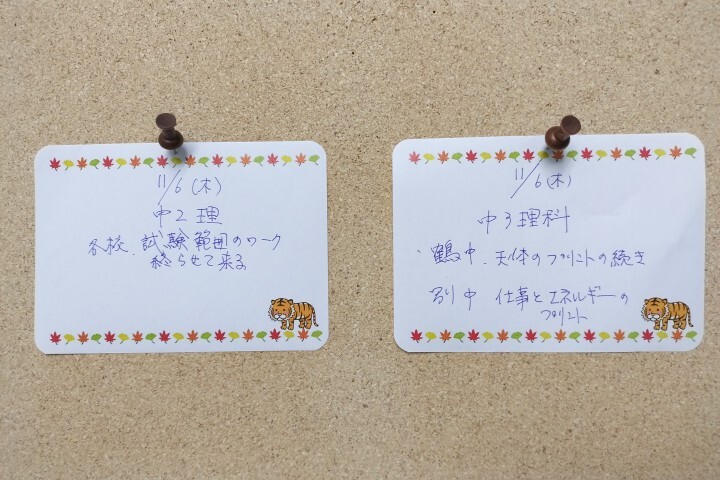 11/6(木)
中2理
各校、試験範囲のワーク
終らせて来る
11/6(木)
中3理科
・鶴中、天体のプリントの続き
中 仕事とエネルギーの
プリント